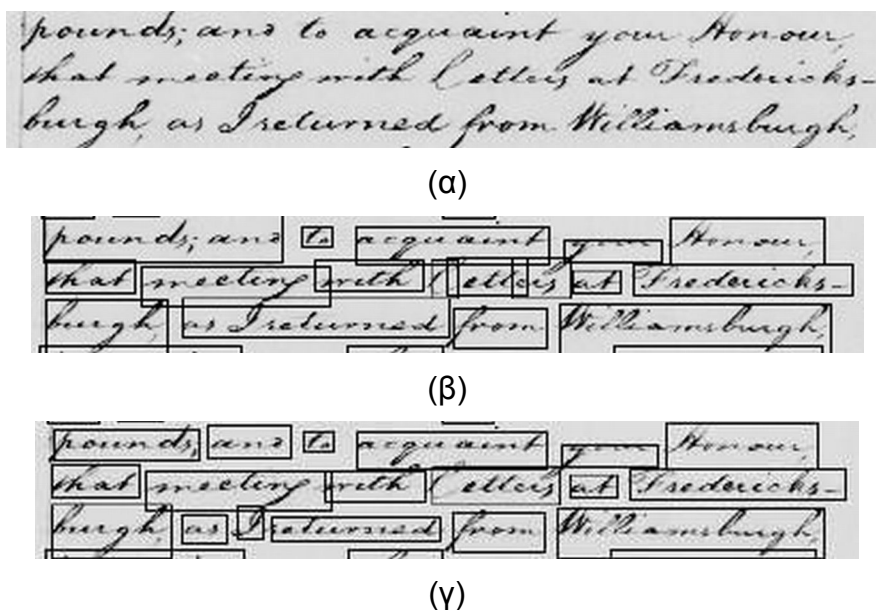 pounds; and to acquaint your Honour,
that meeting with Letters at Fredericks-
burgh, as I returned from Williamsburgh,
(α)
pounds; and to acquaint your Honour,
that meeting with Letters at Fredericks-
burgh, as I returned from Williamsburgh,
(β)
pounds; and to acquaint your Honour,
that meeting with Letters at Fredericks-
burgh, as I returned from Williamsburgh,
(γ)